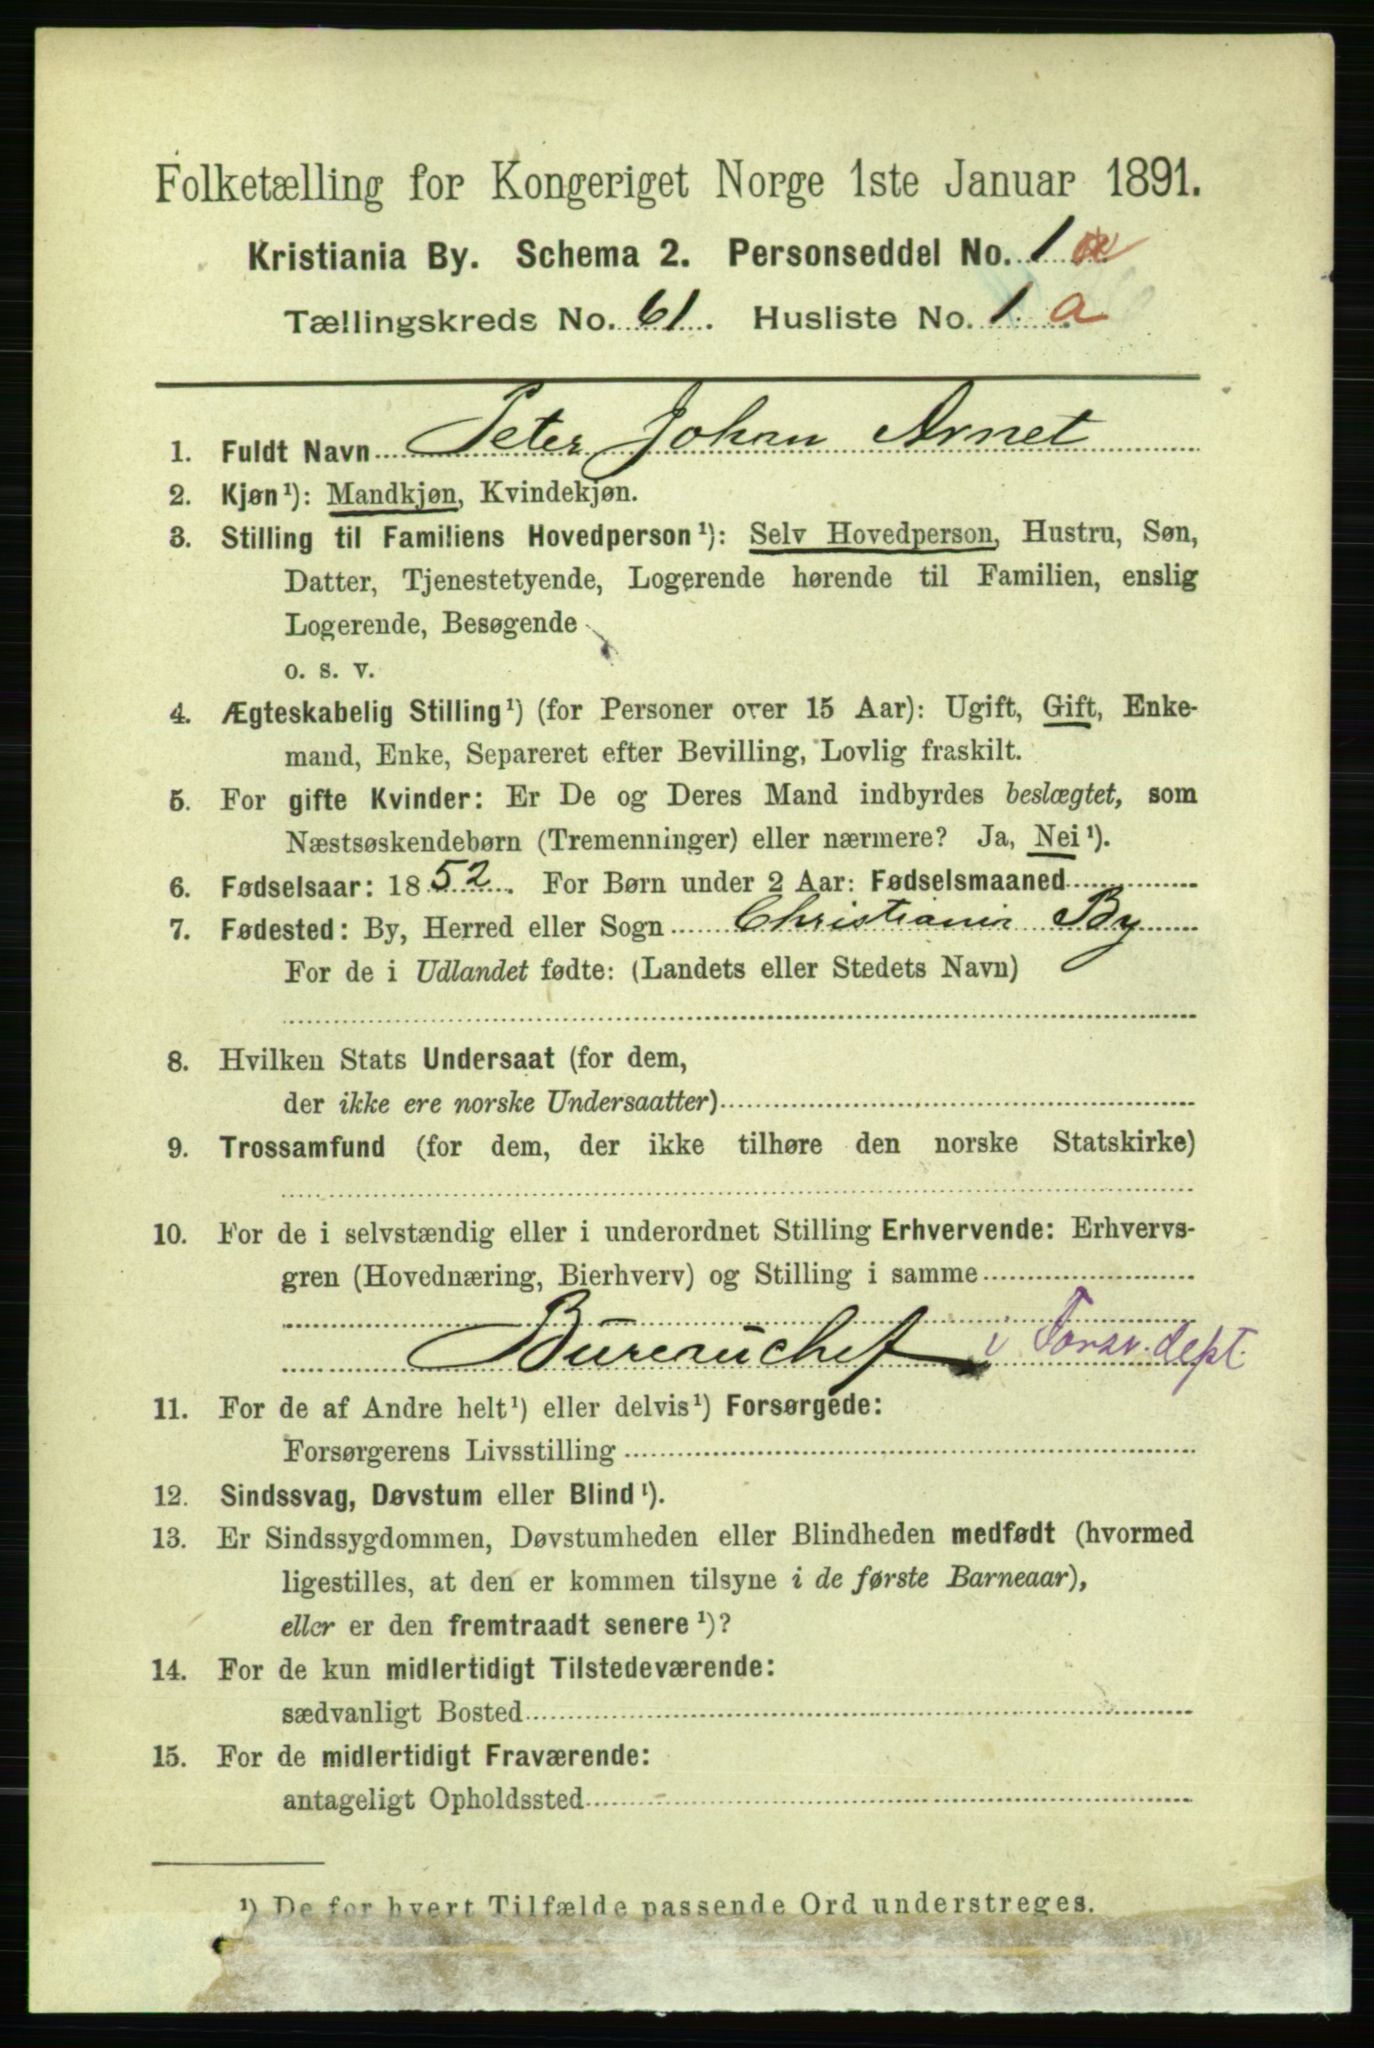 Folketælling for Kongeriget Norge 1ste Januar 1891.
Kristiania By. Schema 2. Personseddel No. 1
Tællingskreds No. 61. Husliste No. 1 a
1. Fuldt Navn Peter Johan Arnet
2. Kjøn¹): Mandkjøn, Kvindekjøn.
3. Stilling til Familiens Hovedperson¹): Selv Hovedperson, Hustru, Søn,
Datter, Tjenestetyende, Logerende hørende til Familien, enslig
Logerende, Besøgende
o. s. v.
4. Ægteskabelig Stilling¹) (for Personer over 15 Aar): Ugift, Gift, Enke-
mand, Enke, Separeret efter Bevilling, Lovlig fraskilt.
5. For gifte Kvinder: Er De og Deres Mand indbyrdes beslægtet, som
Næstsøskendebørn (Tremenninger) eller nærmere? Ja, Nei¹).
6. Fødselsaar: 1852. For Børn under 2 Aar: Fødselsmaaned
7. Fødested: By, Herred eller Sogn Christiania By
For de i Udlandet fødte: (Landets eller Stedets Navn)
8. Hvilken Stats Undersaat (for dem,
der ikke ere norske Undersaatter)
9. Trossamfund (for dem, der ikke tilhøre den norske Statskirke)
10. For de i selvstændig eller i underordnet Stilling Erhvervende: Erhvervs-
gren (Hovednæring, Bierhverv) og Stilling i samme
Bureauchef i Forsv. dept.
11. For de af Andre helt¹) eller delvis¹) Forsørgede:
Forsørgerens Livsstilling
12. Sindssvag, Døvstum eller Blind¹).
13. Er Sindssygdommen, Døvstumheden eller Blindheden medfødt (hvormed
ligestilles, at den er kommen tilsyne i de første Barneaar),
eller er den fremtraadt senere¹)?
14. For de kun midlertidigt Tilstedeværende:
sædvanligt Bosted
15. For de midlertidigt Fraværende:
antageligt Opholdssted
¹) De for hvert Tilfælde passende Ord understreges.